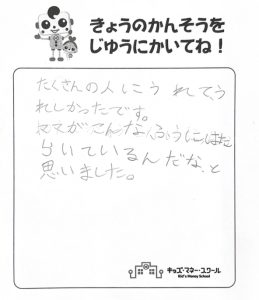 きょうのかんそうを
じゆうにかいてね！
たくさんの人にこう れてう
れしかったです。
ママがこんなふうにはた
らいているんだな、と
思いました。
キッズ・マネー・スクール
Kid's Money School